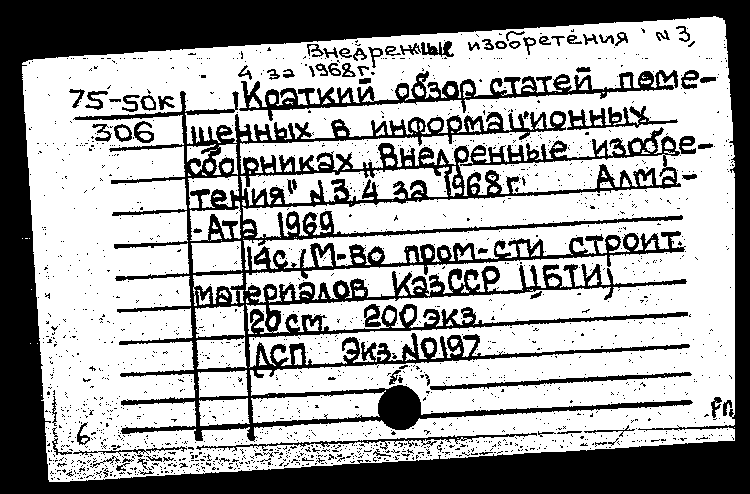 Внедренные изобретения N 3,
4 за 1968 г.
75-50к Краткий обзор статей, поме-
306 щенных в информационных
сборниках „Внедренные изобре-
тения" N3, 4 за 1968 г. Алма-
-Ата, 1969.
14с. (М-во пром-сти строит.
материалов КазССР ЦБТИ)
20 см. 200 экз.
ДСП. Экз. N0197
6 РП